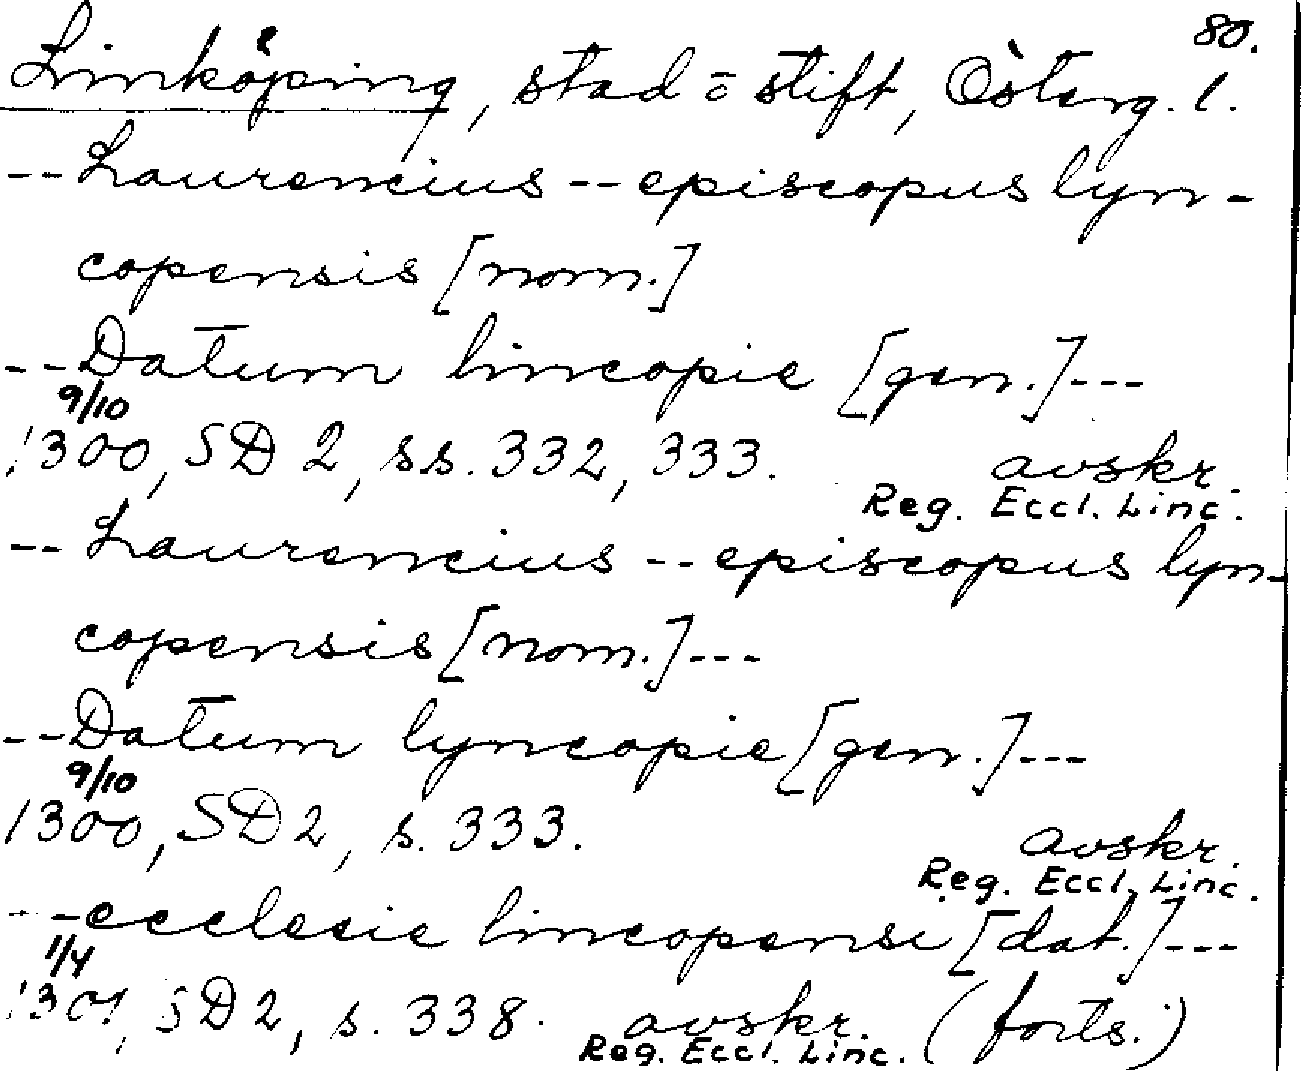 80.
Linköping, stad o stift, Österg. l.
-- Laurencius -- episcopus lyn-
copensis [nom.]
-- Datum lincopie [gen.] ---
9/10
1300, SD 2, ss. 332, 333. avskr.
Reg. Eccl. Linc.
-- Laurencius -- episcopus lyn-
copensis [nom.] ---
-- Datum lyncopie [gen.] ---
9/10
1300, SD 2, s. 333. avskr.
Reg. Eccl. Linc.
-- ecclesie lincopensi [dat.] ---
1/4
1301, SD 2, s. 338. avskr. (forts.)
Reg. Eccl. Linc.